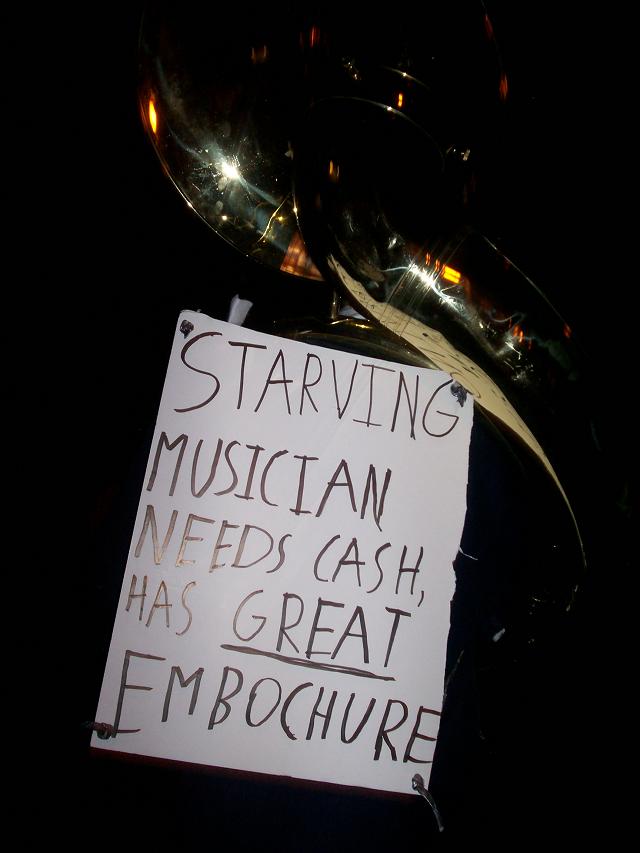 STARVING
MUSICIAN
NEEDS CASH,
HAS GREAT
EMBOCHURE